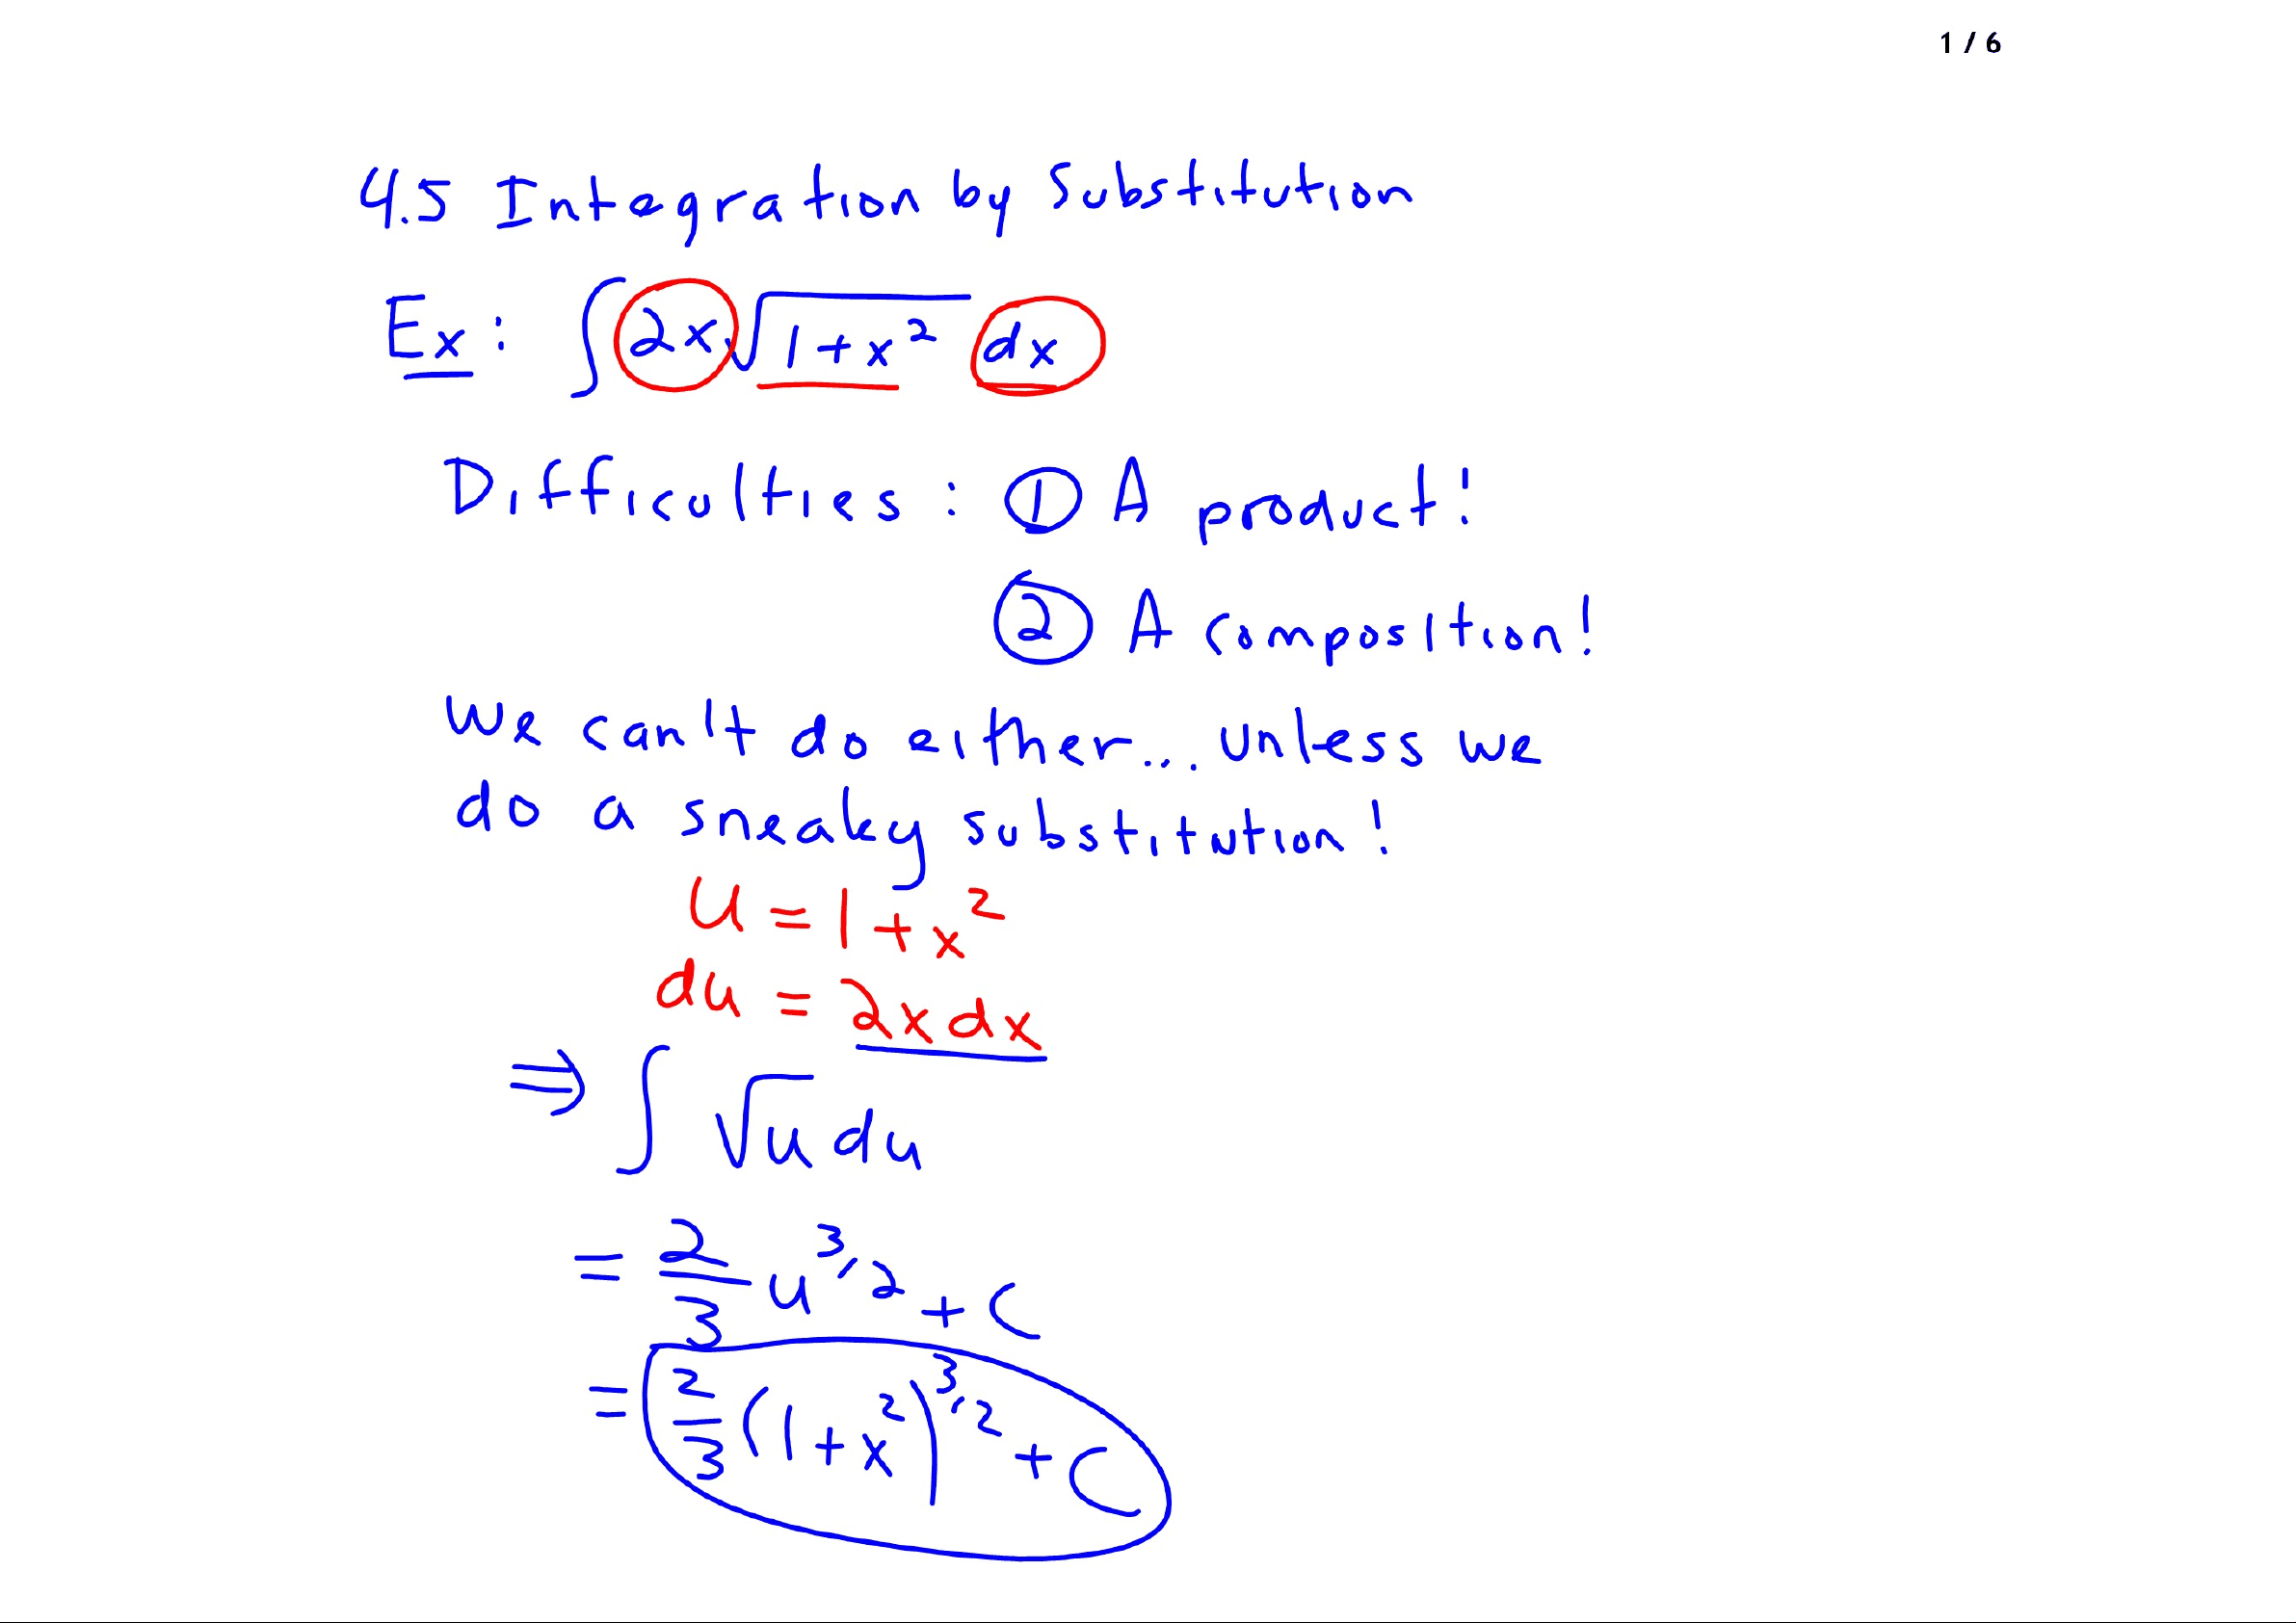 1 / 6
4.5 Integration by Substitution
Ex: ∫ 2x √(1+x²) dx
Difficulties: ① A product!
② A composition!
We can't do either... unless we
do a sneaky substitution!
u = 1+x²
du = 2x dx
⇒ ∫ √u du
= 2/3 u^(3/2) + C
= 2/3 (1+x²)^(3/2) + C